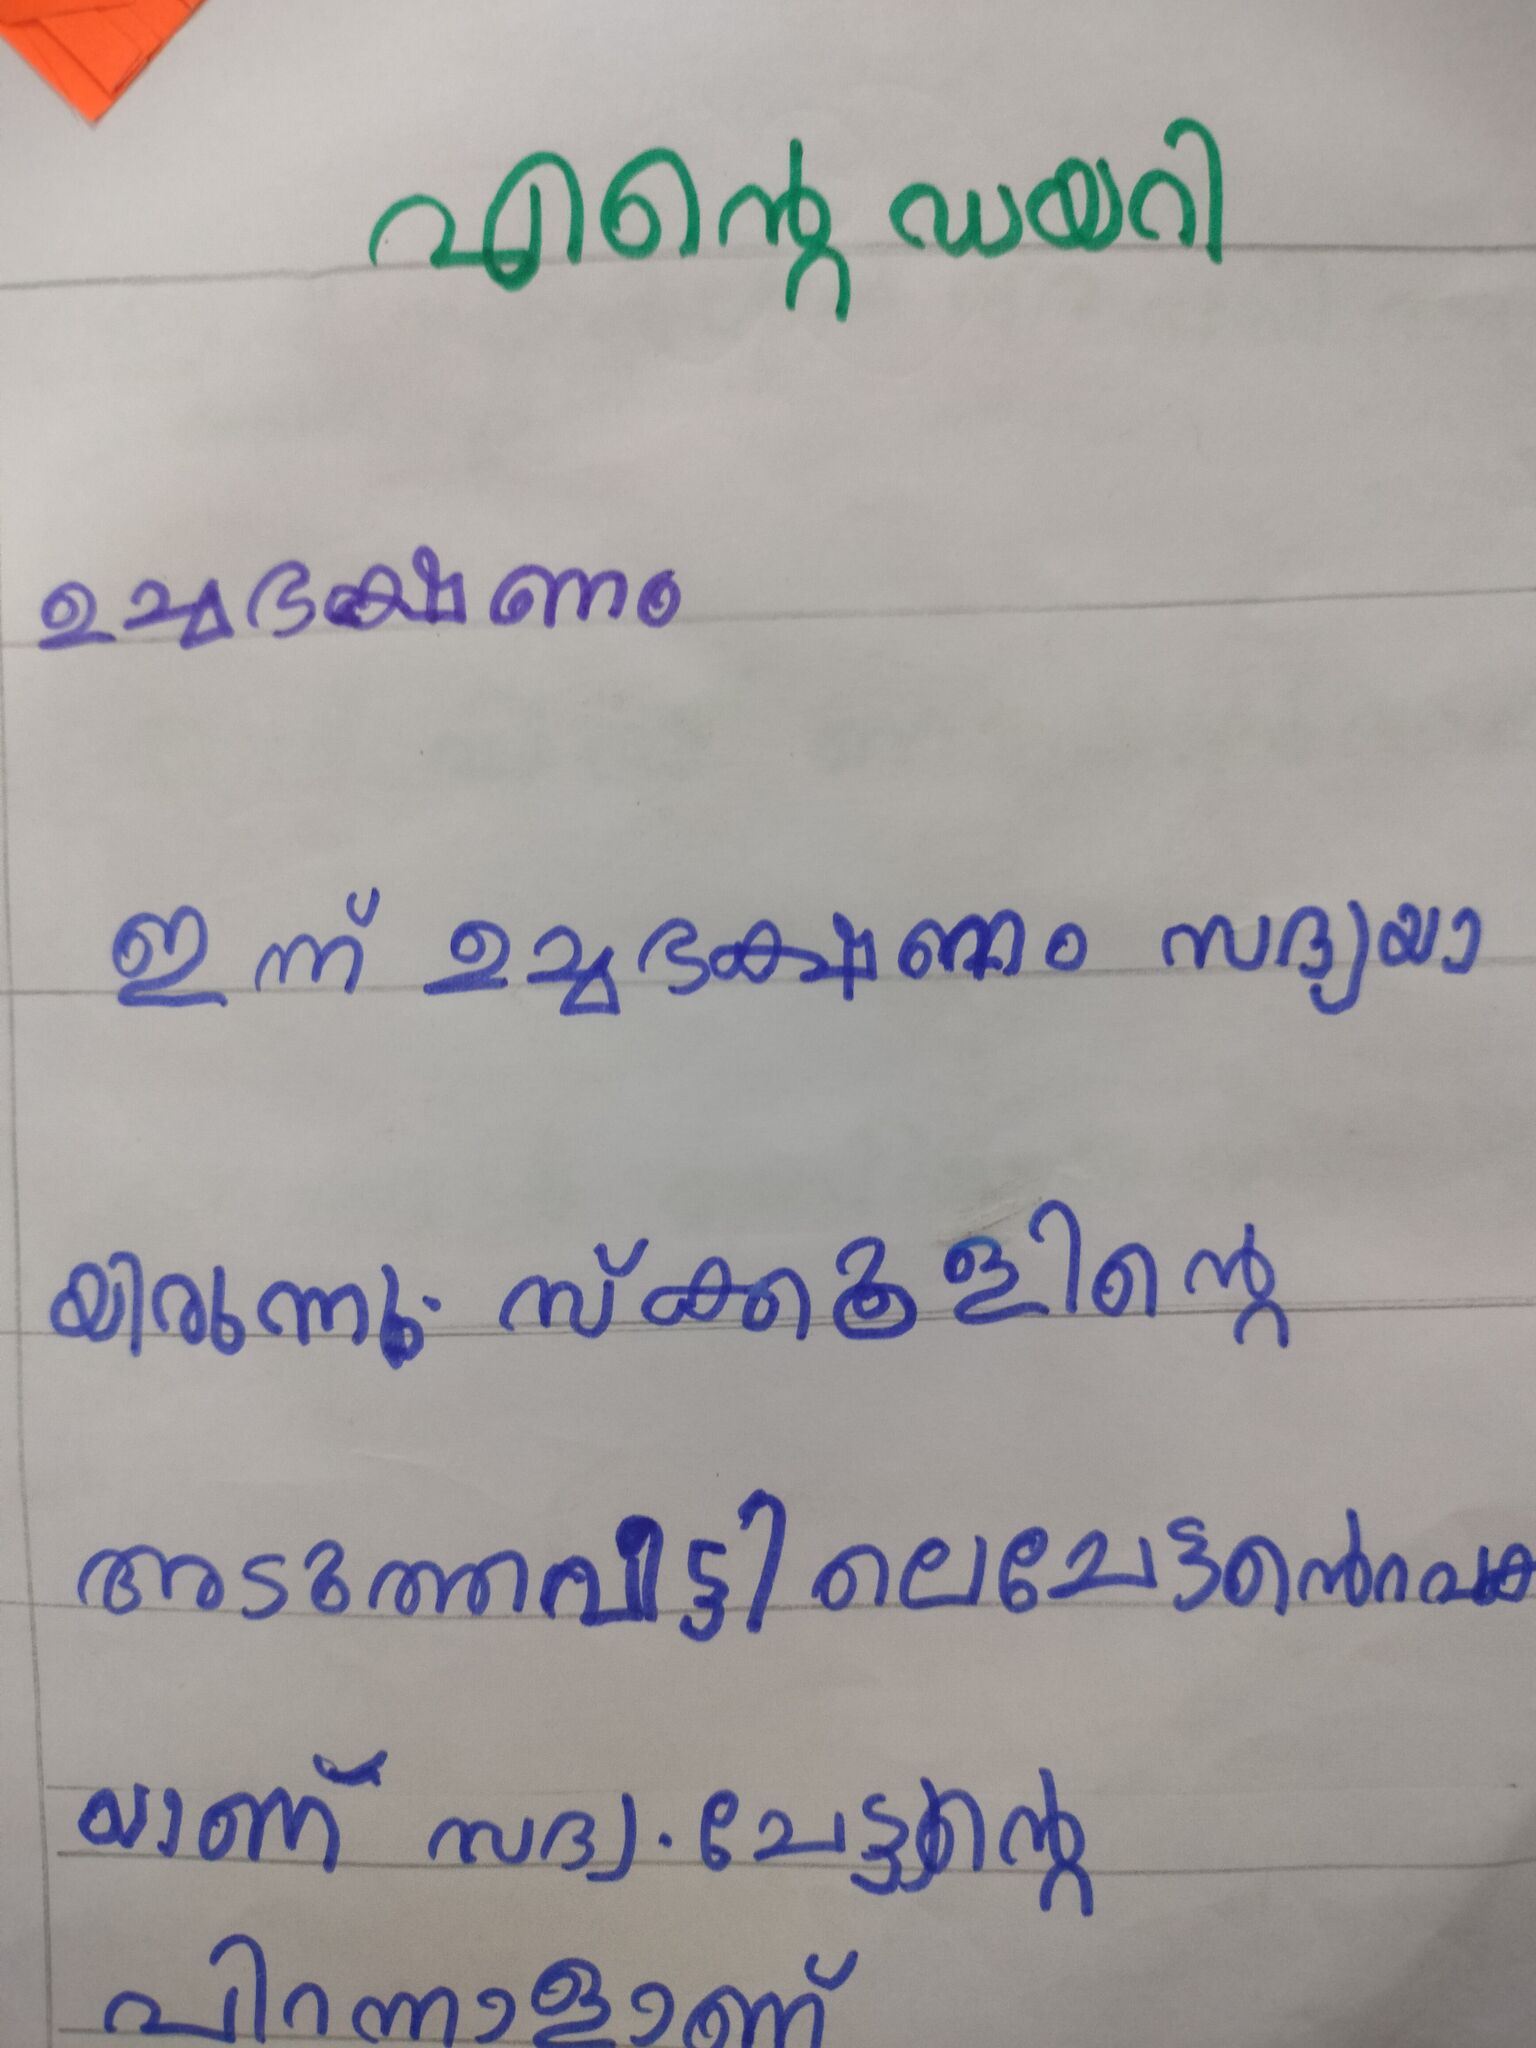 എന്റെ ഡയറി
ഉച്ചഭക്ഷണം
ഇന്ന് ഉച്ചഭക്ഷണം സദ്യയാ
യിരുന്നു. സ്ക്കൂളിന്റെ
അടുത്തവീട്ടിലെചേട്ടൻെറവക
യാണ് സദ്യ. ചേട്ടന്റെ
പിറന്നാളാണ്